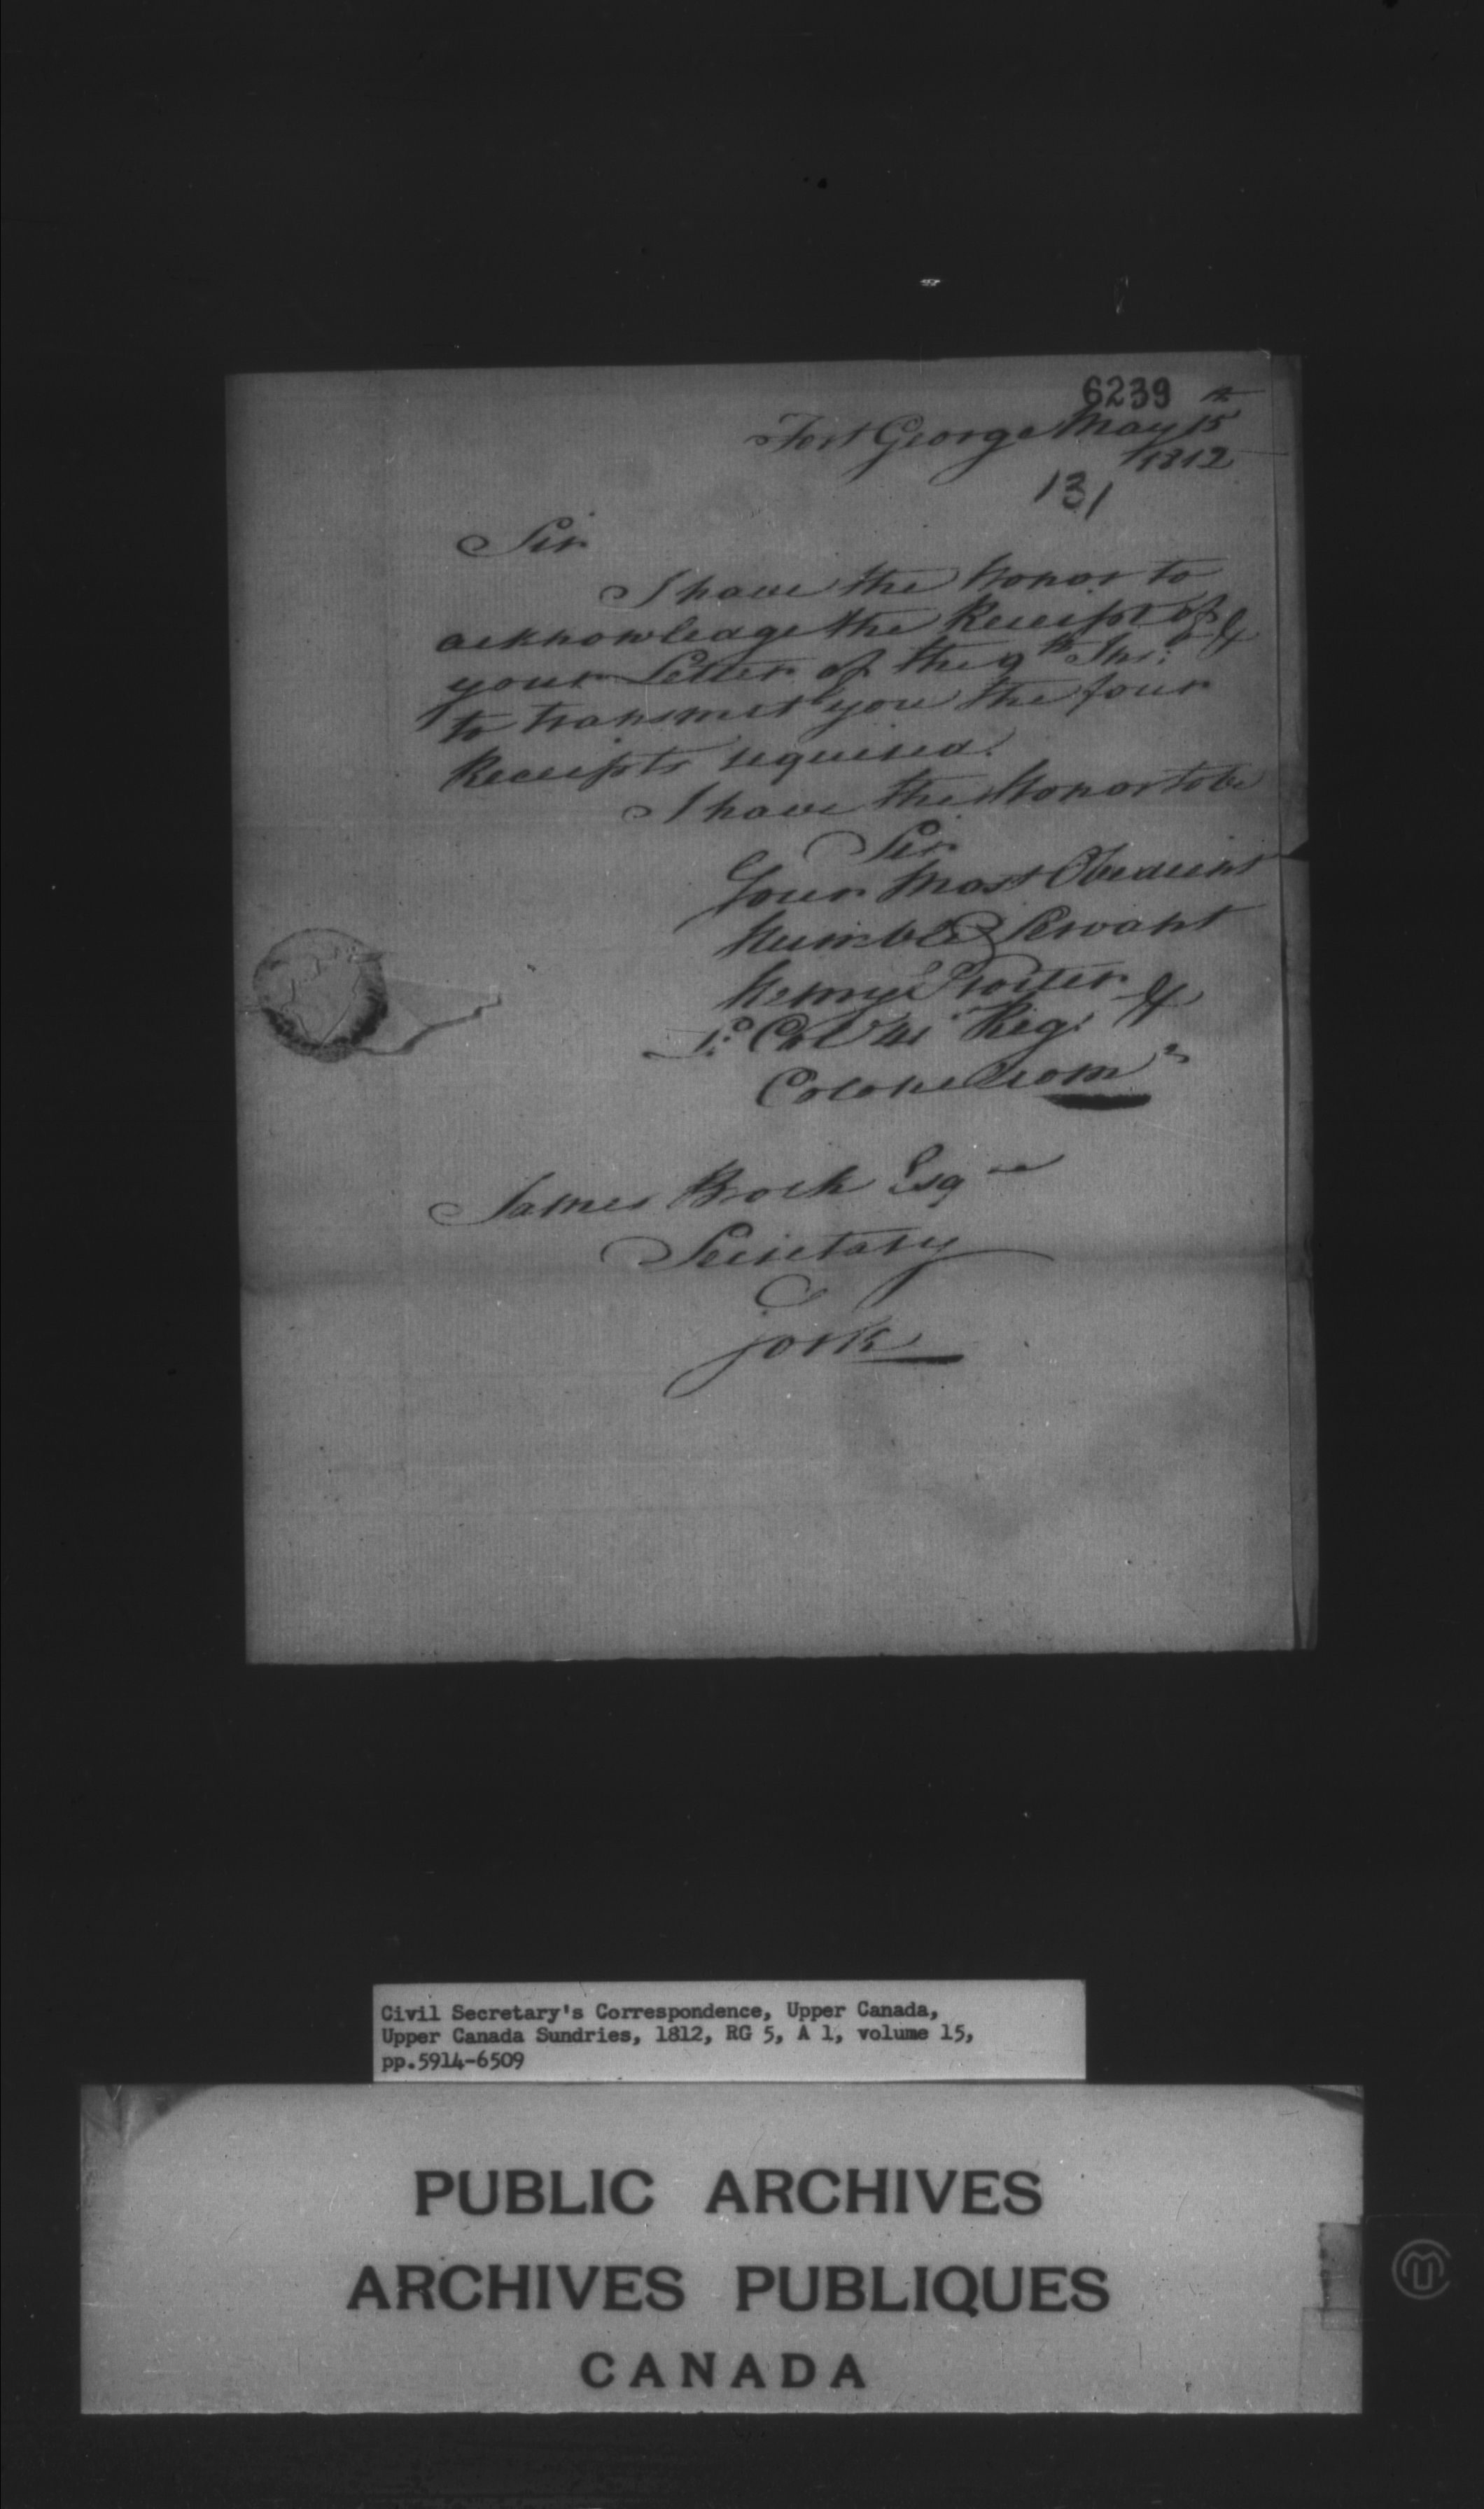 6239
Fort George May 15th
1812
131
Sir
I have the honor to
acknowledge the Receipt of
your Letter of the 9th Inst: &
to transmit you the four
Receipts required.
I have the Honor to be
Sir
Your Most Obedient
Humble Servant
Henry Procter
Lt Col 41 Regt &
Colonel Comg
James Brock Esqre
Secretary
York
Civil Secretary's Correspondence, Upper Canada,
Upper Canada Sundries, 1812, RG 5, A 1, volume 15,
pp.5914-6509
PUBLIC ARCHIVES
ARCHIVES PUBLIQUES
CANADA